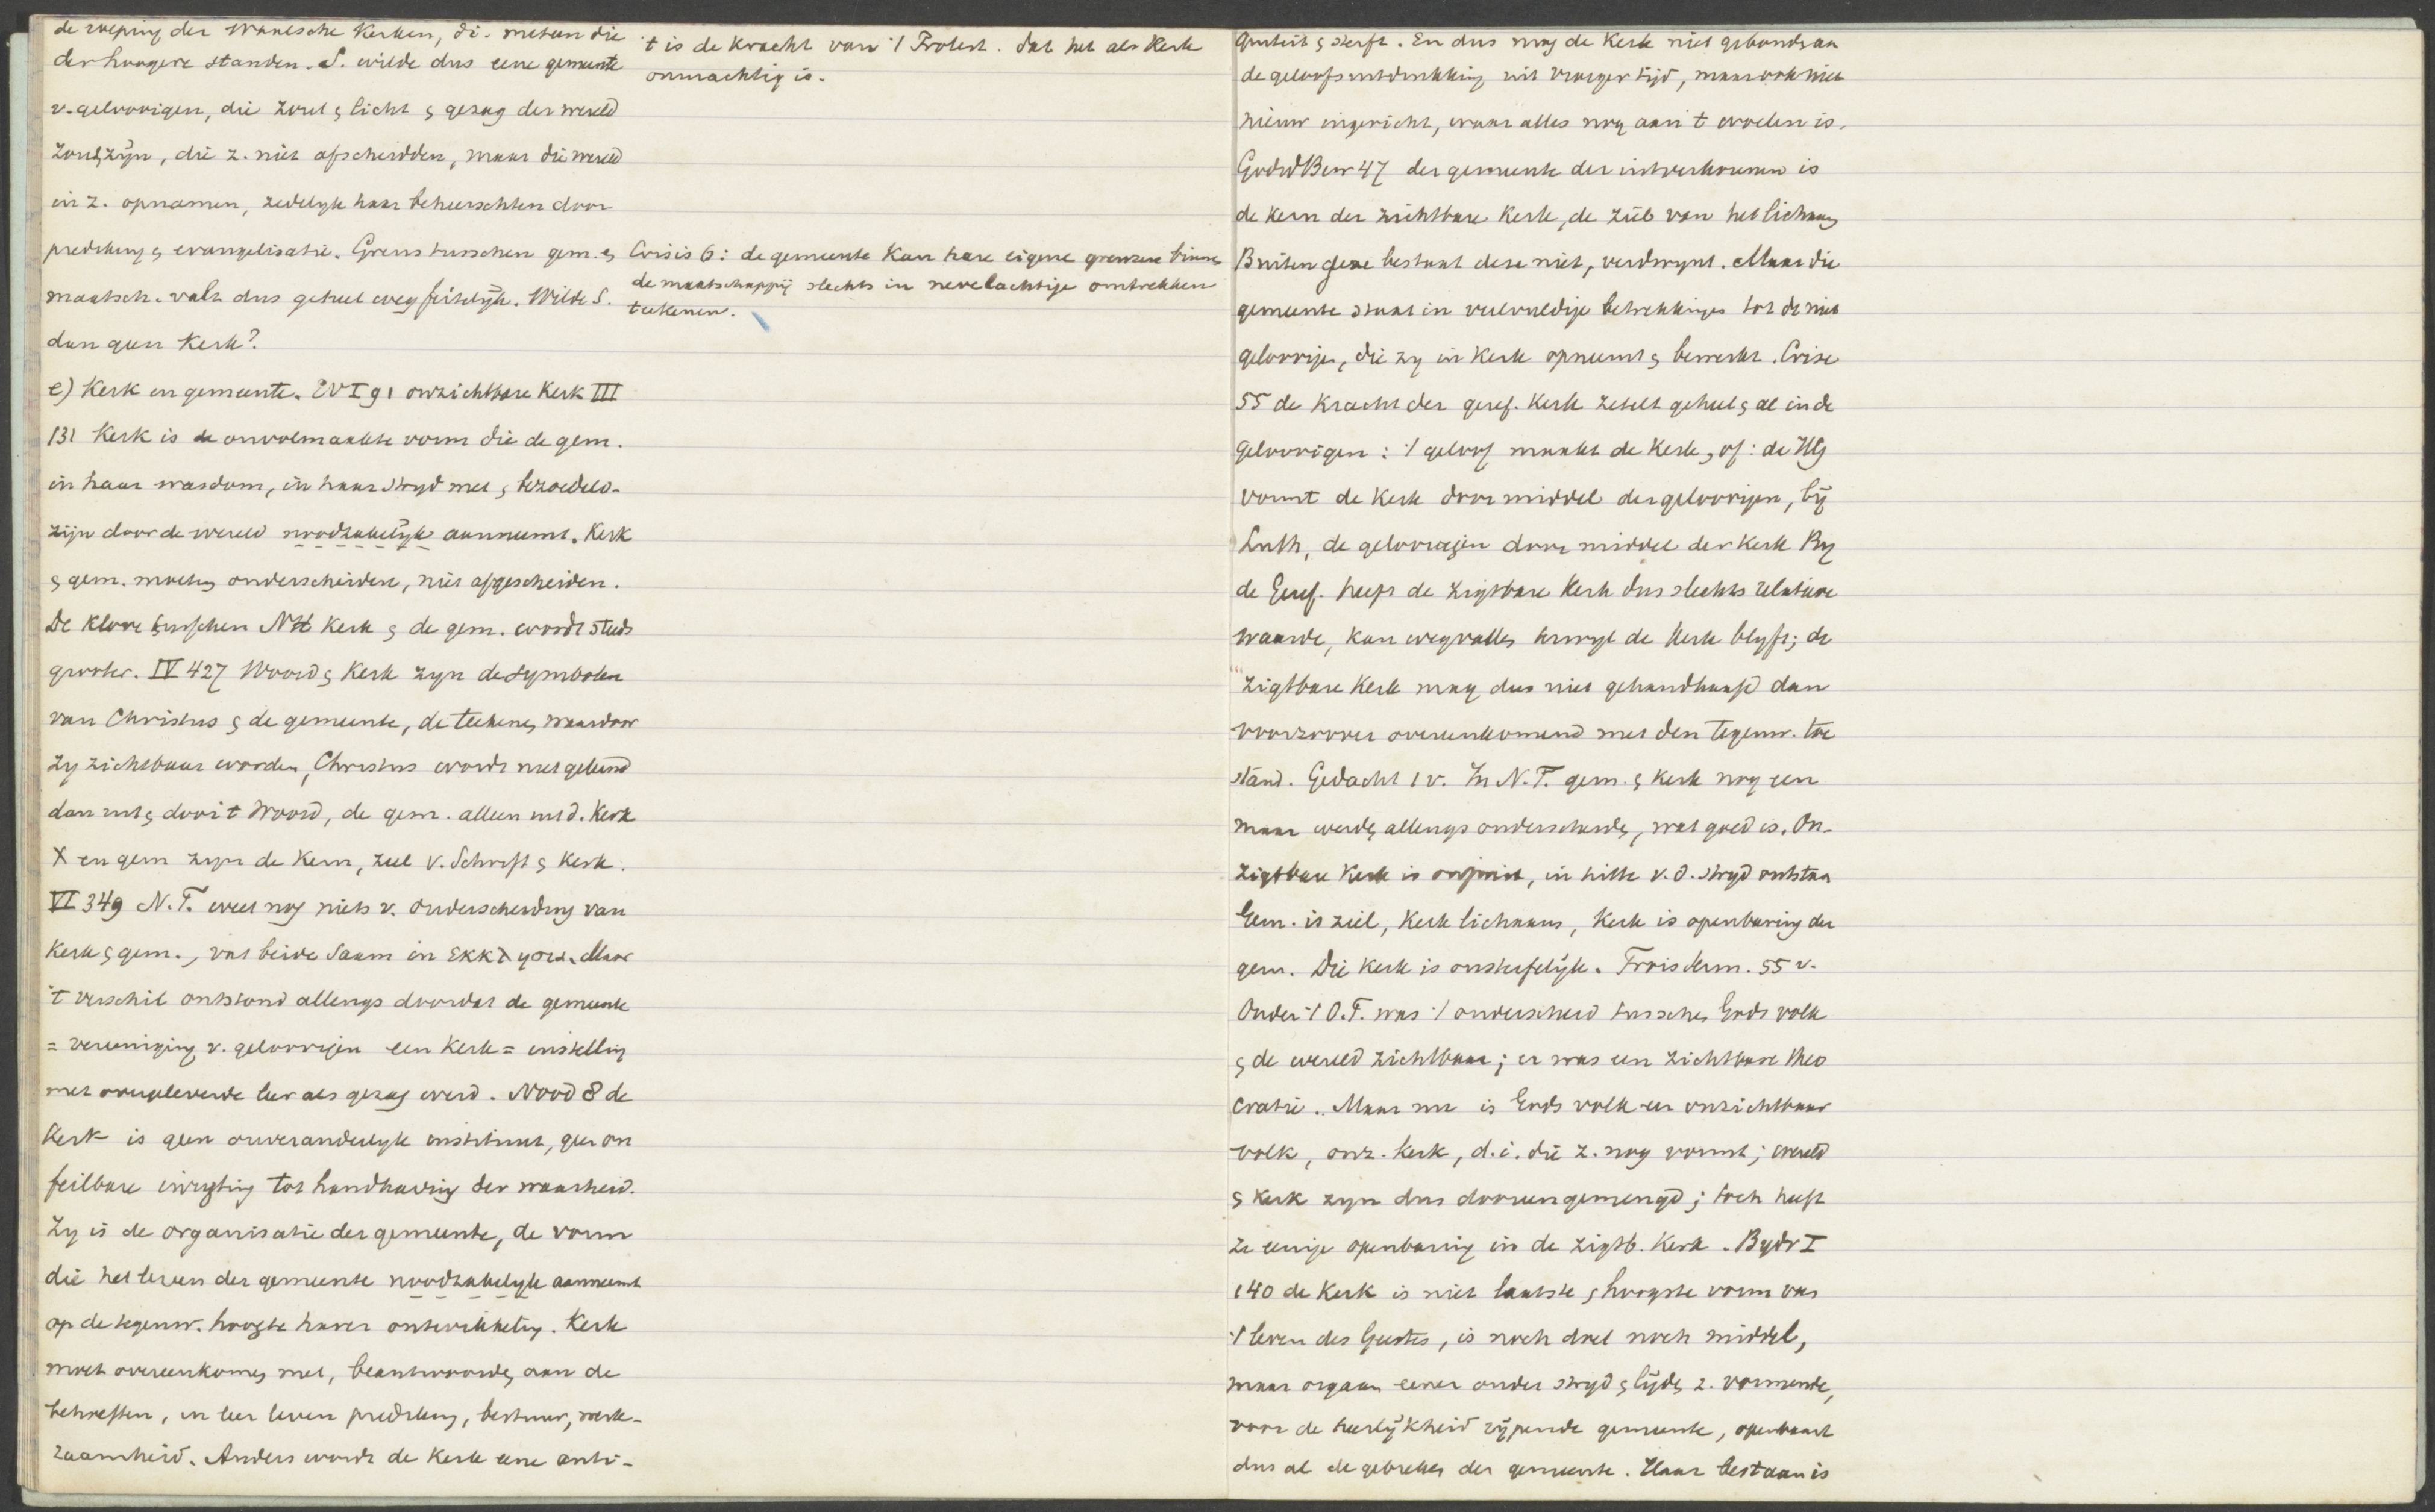 de roeping der Waalsche Kerken, di. metsen die
der hoogere standen. S. wilde dus eene gemeente
v. geloovigen, die zout & licht & gezag der wereld
zoud. zijn, die z. niet afscheidden, maar die wereld
in z. opnamen, zedelyk haar beheerschten door
prediking & evangelisatie. Grens tusschen gem. &
maatsch. valt dus geheel weg feitelijk. Wilde S.
dan geen Kerk?
e) Kerk en gemeente. EV I 91 onzichtbare Kerk III
131 Kerk is de onvolmaakte vorm die de gem.
in haar wasdom, in haar stryd met & bezoedeld-
zijn door de wereld noodzakelijk aanneemt. Kerk
& gem. moeten onderscheiden, niet afgescheiden.
De klove tusschen NH Kerk & de gem. wordt steeds
grooter. IV 427 Woord & Kerk zyn de symbolen
van Christus & de gemeente, de teekenen waardoor
zy zichtbaar worden, Christus wordt niet gekend
dan uit & door 't Woord, de gem. alleen uit d. Kerk
X en gem zyn de Kern, ziel v. Schrift & Kerk.
VI 349 N.T. weet nog niets v. onderscheiding van
Kerk & gem., vat beide saam in εκκλησια. Maar
't verschil ontstond allengs doordat de gemeente
= vereeniging v. geloovigen een Kerk = instelling
met overgeleverde leer als gezag werd. Nood 8 de
Kerk is geen onveranderlyk instituut, geen on
feilbare inrigting tot handhaving der waarheid.
Zy is de organisatie der gemeente, de vorm
die het leven der gemeente noodzakelyk aanneemt
op de tegenw. hoogte harer ontwikkeling. Kerk
moet overeenkomen met, beantwoorden aan de
behoeften, in leer leven prediking, bestuur, werk-
zaamheid. Anders wordt de Kerk eene anti-
't is de kracht van 't Protest. dat het als Kerk
onmachtig is.
Crisis 6: de gemeente kan hare eigene grenzen binnen
de maatschappij slechts in nevelachtige omtrekken
teekenen.
quiteit & sterft. En dus mag de Kerk niet gebonden aan
de geloofsuitdrukking uit vroeger tijd, maar ook niet
nieuw ingericht, waar alles nog aan 't woelen is.
GodsdBew 47 der gemeente der uitverkorenen is
de kern der zichtbare Kerk, de ziel van het lichaam
Buiten gene bestaat deze niet, verdwynt. Maar die
gemeente staat in veelvuldige betrekkingen tot de niet
geloovigen, die zy in Kerk opneemt & bewerkt. Crise
55 de kracht der geref. Kerk zetelt geheel & al in de
geloovigen: 't geloof maakt de Kerk, of: de HG
vormt de Kerk door middel der geloovigen, bij
Luth, de geloovigen door middel der Kerk By
de Geref. heeft de zigtbare Kerk dus slechts relatieve
waarde, kan wegvallen terwyl de Kerk blyft; de
zigtbare Kerk mag dus niet gehandhaafd dan
voorzoover overeenkomend met den tegenw. toe
stand. Gedacht 1 v. In N.T. gem. & Kerk nog een
maar werden allengs onderscheiden, wat goed is. On-
zigtbare Kerk is onjuist, in hitte v. d. stryd ontstaan
Gem. is ziel, Kerk lichaam, Kerk is openbaring der
gem. Die Kerk is onsterfelijk. Trois Serm. 55 v.
Onder 't O.T. was 't onderscheid tusschen Gods volk
& de wereld zichtbaar; er was een zichtbare theo
cratie. Maar nu is Gods volk een onzichtbaar
volk, onz. Kerk, d.i. die z. nog vormt; wereld
& Kerk zyn dus dooreengemengd; toch heeft
ze eenige openbaring in de zigtb. Kerk. Bydr I
140 de Kerk is niet laatste & hoogste vorm van
't leven des Geestes, is noch doel noch middel,
maar orgaan eener onder stryd & lijden z. vormende,
voor de heerlijkheid rijpende gemeente, openbaart
dus al de gebreken der gemeente. Haar bestaan is